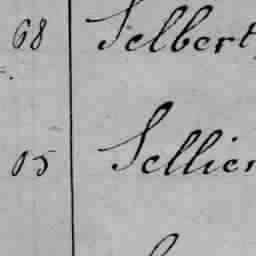 68 Selbert,
05 Sellier